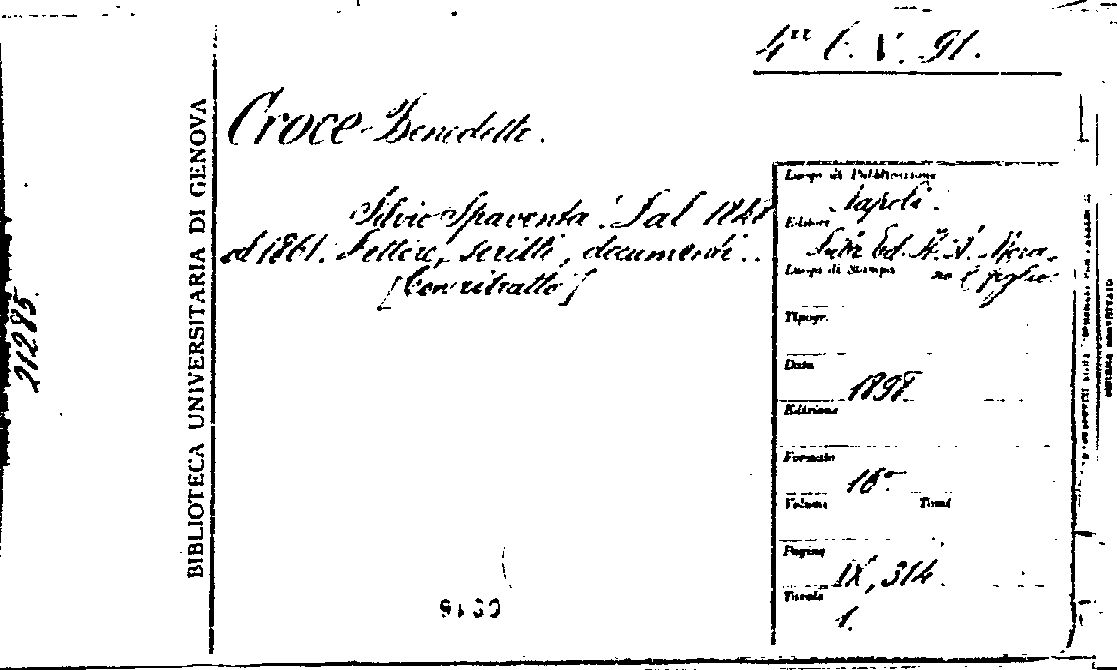 4^rr C. V. 91.
Croce Benedetto.
Silvio Spaventa. Dal 1848
al 1861. Lettere, scritti, documenti.
[Con ritratto]
BIBLIOTECA UNIVERSITARIA DI GENOVA
21285
Luogo di Pubblicazione
Napoli.
Editore
Ved. A. Mora-
no e figlio
Luogo di Stampa
Tipogr.
Data
1898
Edizione
Formato
16°
Volume Tomi
Pagine
IX, 314
Tavole
1.